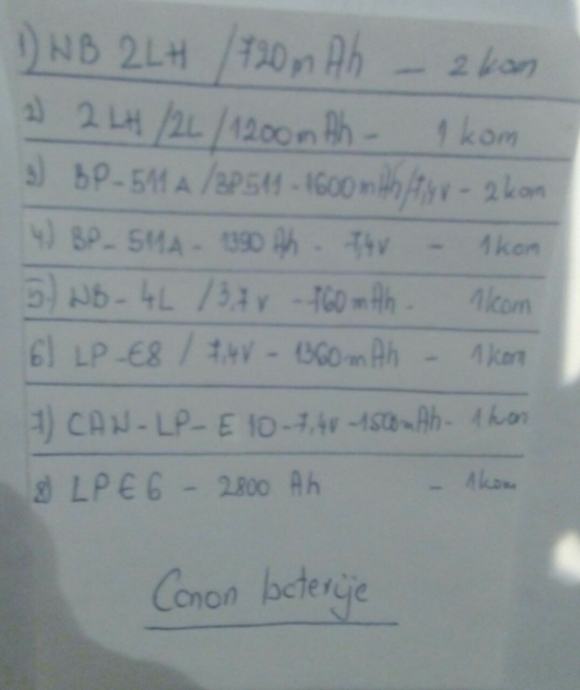 1) NB 2LH /720mAh - 2 kom
2) 2LH/2L/1200mAh - 1 kom
3) BP-511A/BP511-1600mAh/7,4v - 2kom
4) BP-511A - 1390 Ah - 7,4v - 1kom
5) NB-4L /3,7v -760mAh - 1kom
6) LP-E8 / 7,4v - 1360mAh - 1kom
7) CAN-LP-E10-7,4v-1500mAh- 1kom
8) LPE6 - 2800 Ah - 1kom
Canon baterije